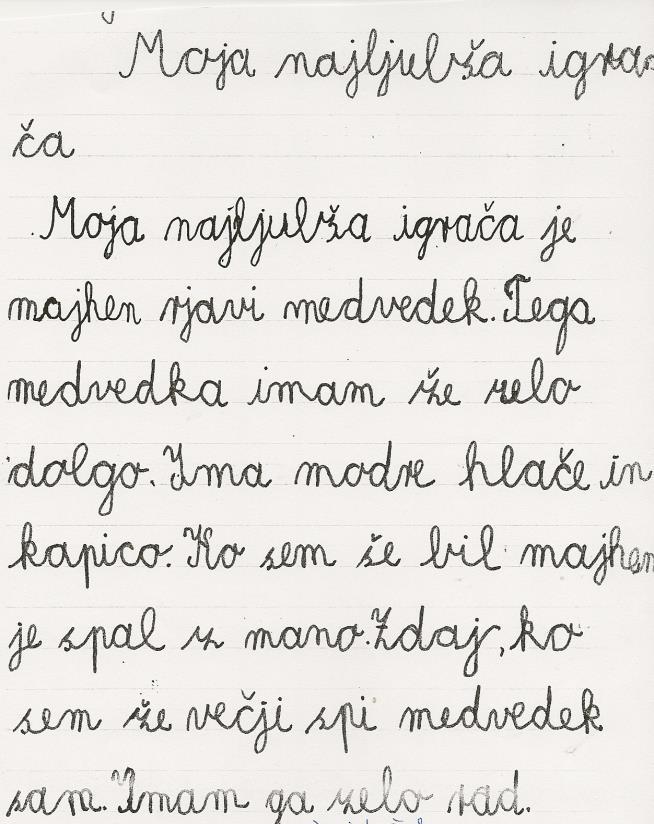 Moja najljubša igra-
ča
Moja najljubša igrača je
majhen rjavi medvedek. Tega
medvedka imam že zelo
dolgo. Ima modre hlače in
kapico. Ko sem še bil majhen
je spal z mano. Zdaj, ko
sem že večji spi medvedek
sam. Imam ga zelo rad.